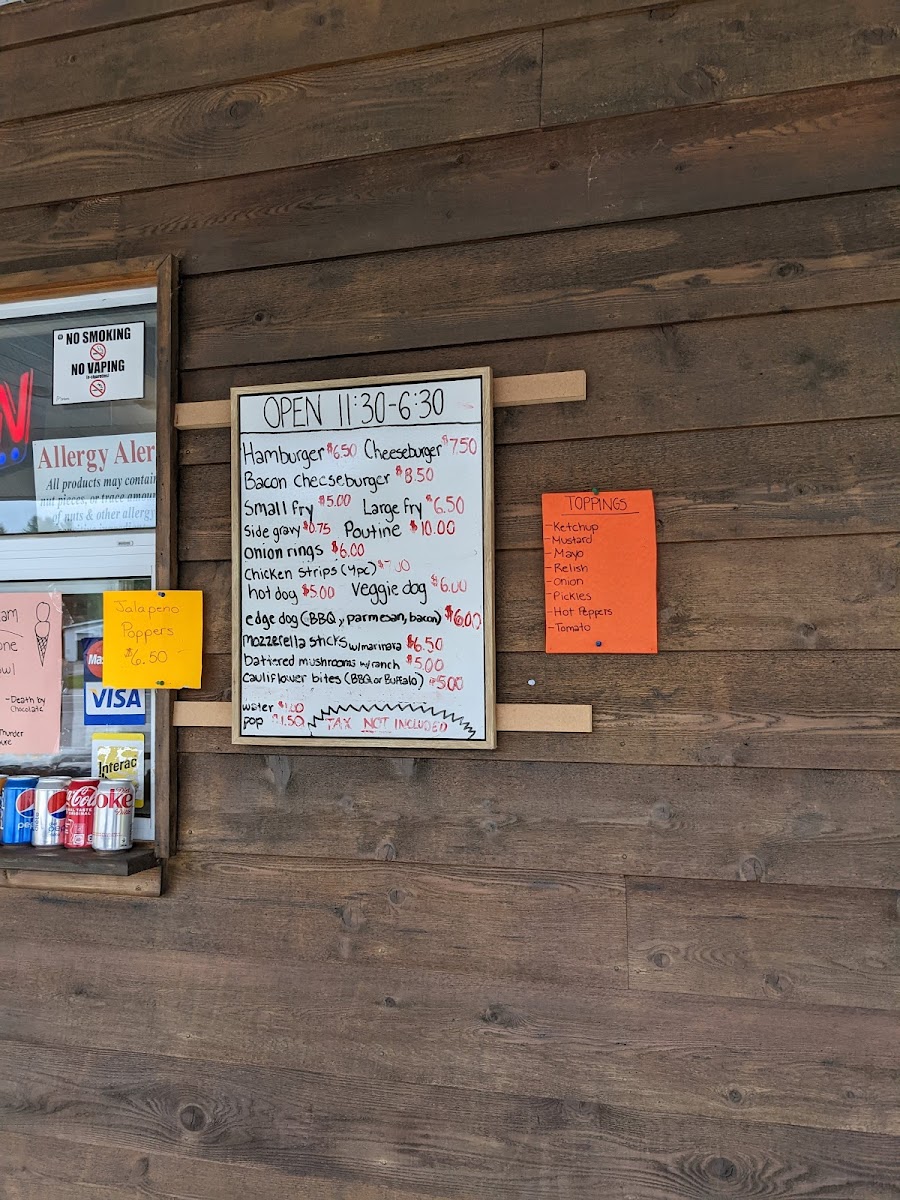 NO SMOKING
NO VAPING
Allergy Aler
All products may contain
nut pieces, or trace amoun
of nuts & other allergy
am
one
wl
-Death by
Chocolate
Thunder
ure
Jalapeno
Poppers
$6.50
VISA
Interac
pepsi
Coca-Cola
Coke
OPEN 11:30-6:30
Hamburger $6.50 Cheeseburger $7.50
Bacon cheeseburger $8.50
Small fry $5.00 Large fry $6.50
Side gravy $0.75 Poutine $10.00
onion rings $6.00
chicken strips (4pc)
hot dog $5.00 veggie dog $6.00
edge dog (BBQ, parmesan, bacon) $6.00
mozzerella sticks w/marinara $6.50
battered mushrooms w/ranch $5.00
cauliflower bites (BBQ or Buffalo) $5.00
water $1.00
pop $1.50 TAX NOT INCLUDED
TOPPINGS
-Ketchup
-Mustard
-Mayo
-Relish
-Onion
-Pickles
-Hot Peppers
-Tomato